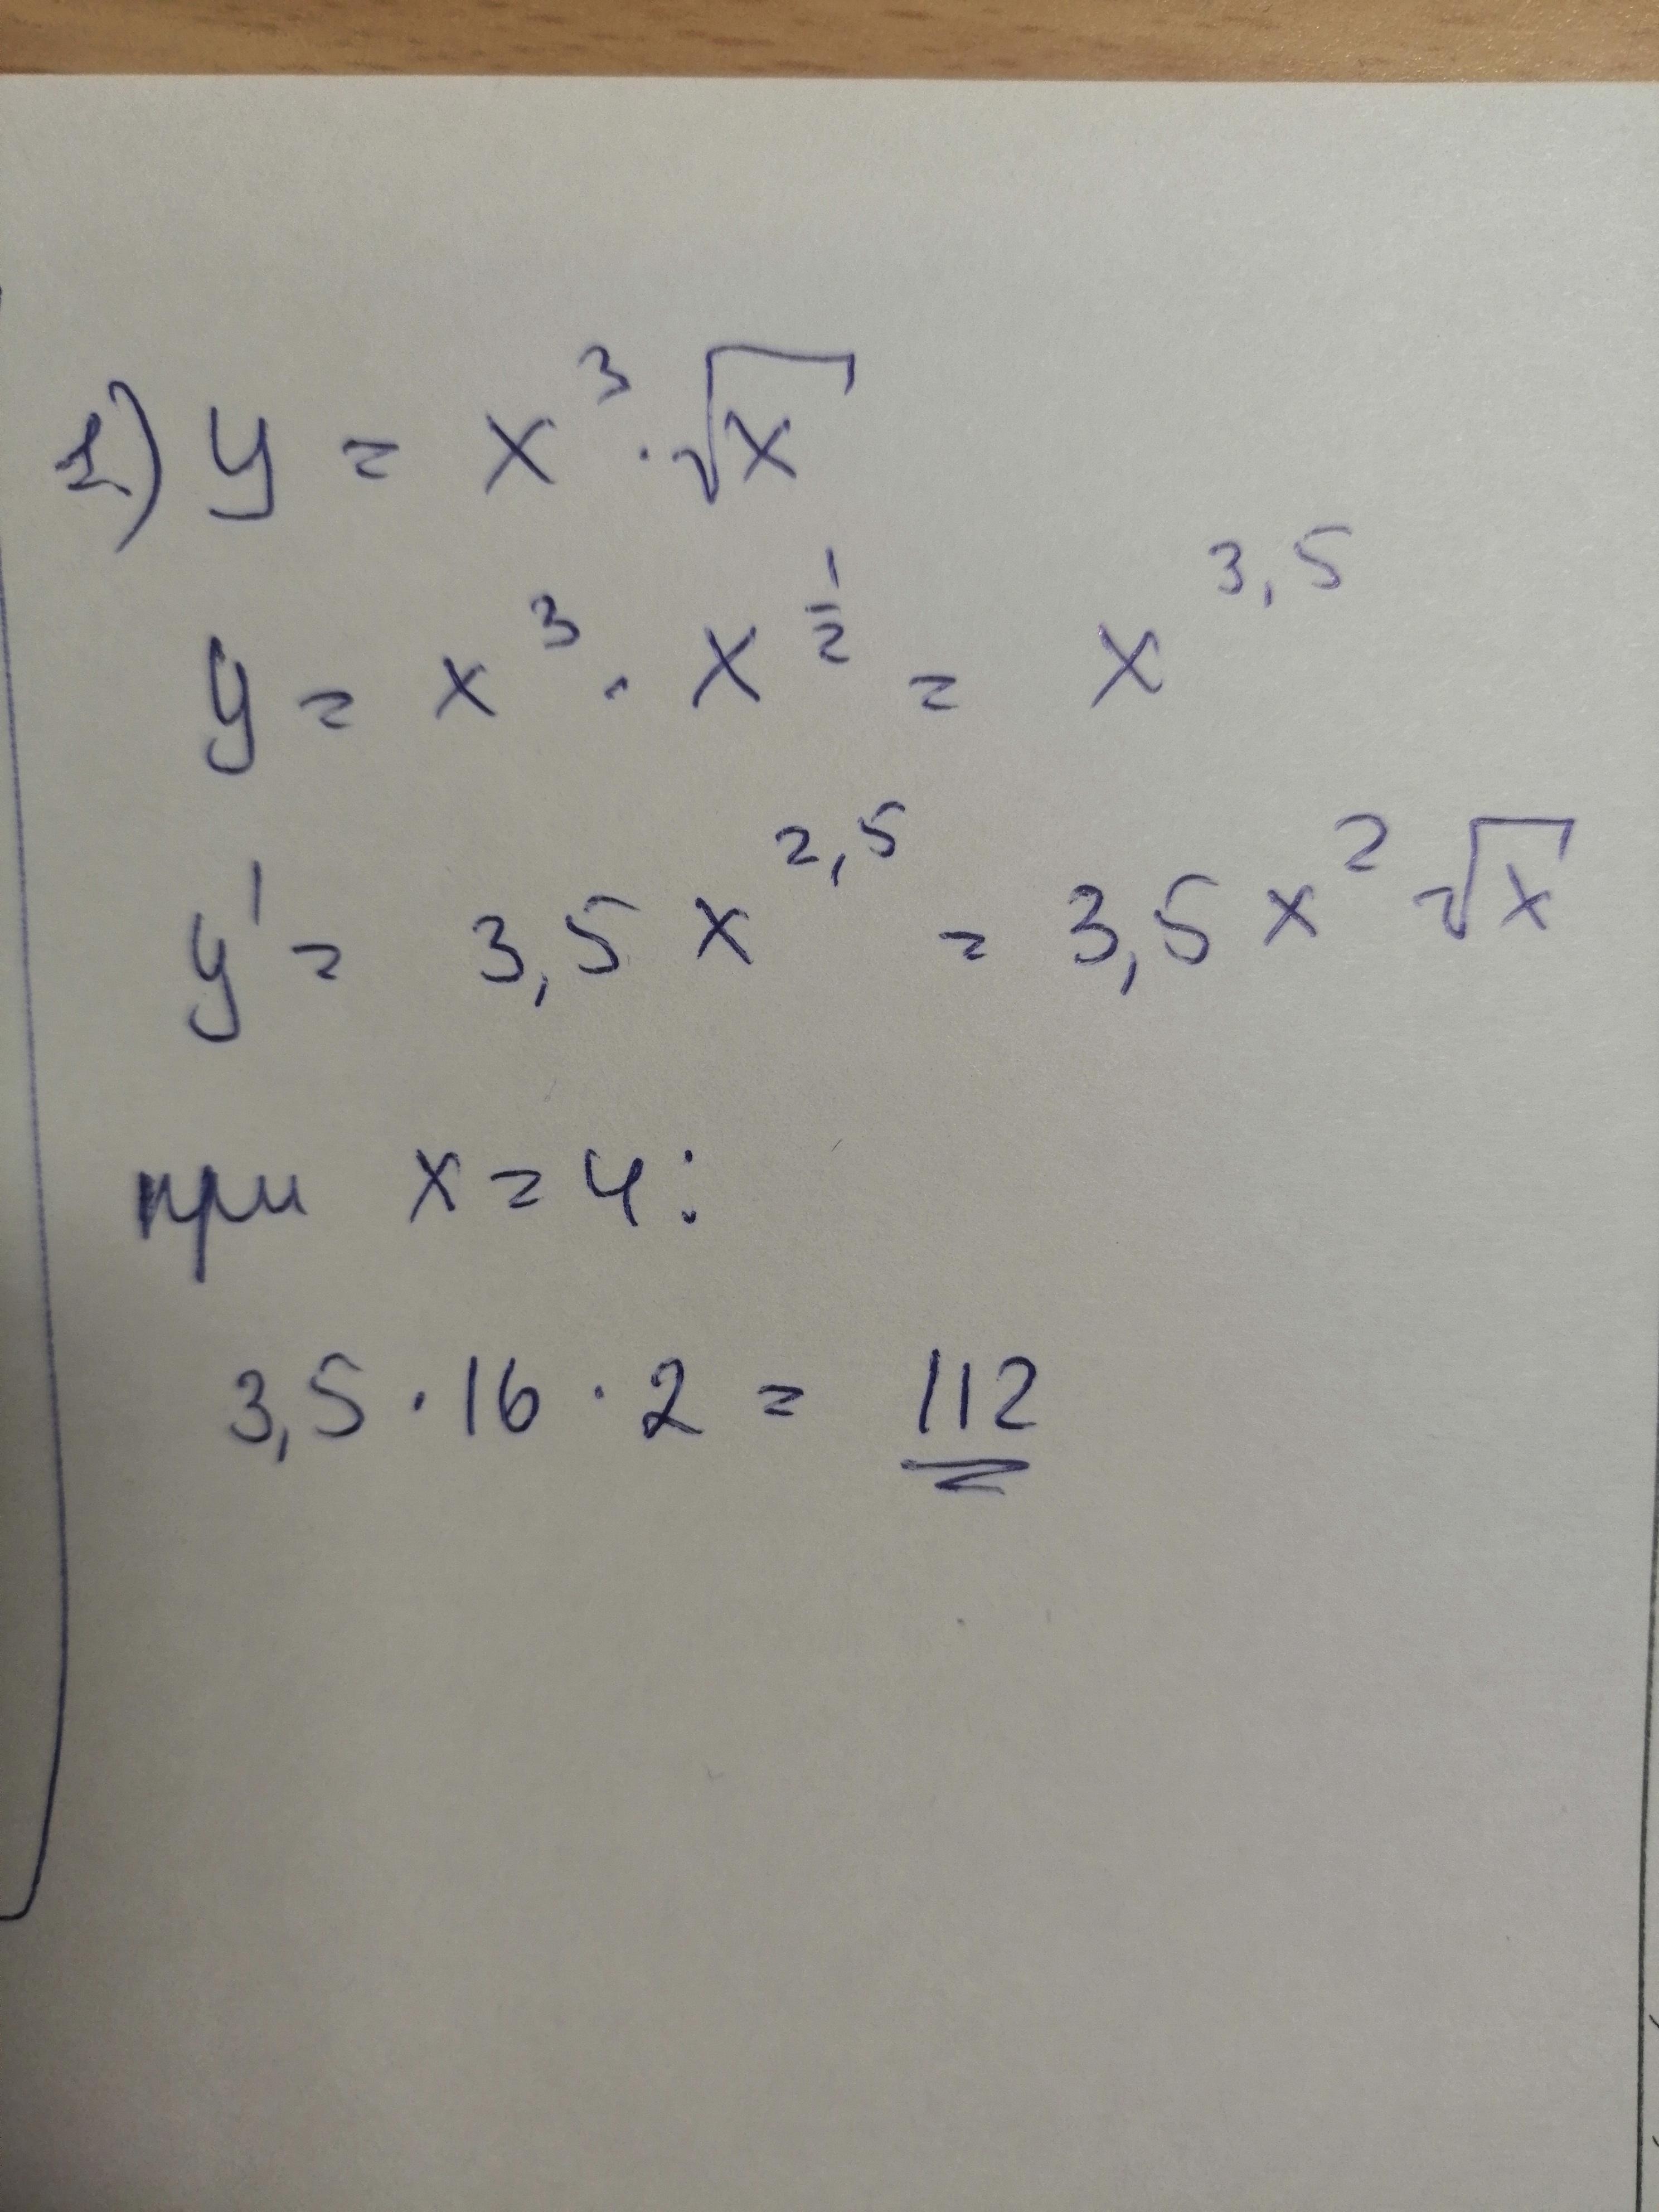 1) y = x³ · √x
y = x³ · x^(1/2) = x^(3,5)
y' = 3,5 x^(2,5) = 3,5 x² √x
при x = 4:
3,5 · 16 · 2 = 112